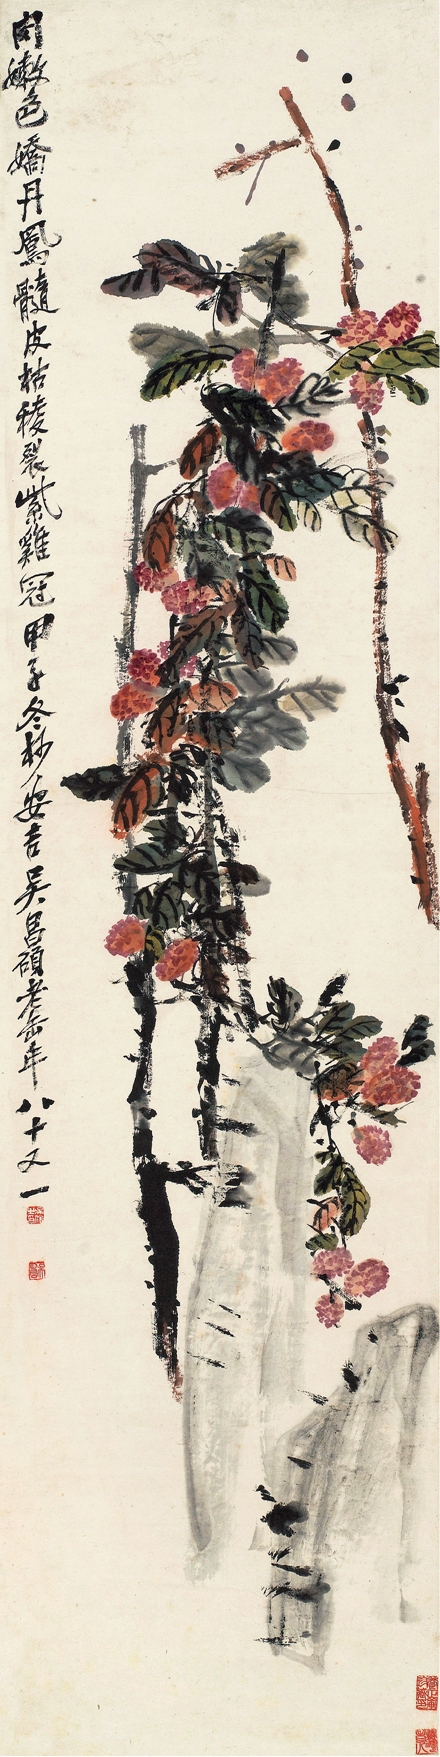 肉嫩色嬌丹鳳髓皮枯稜裂紫雞冠甲子冬杪安吉吳昌碩老缶年八十又一